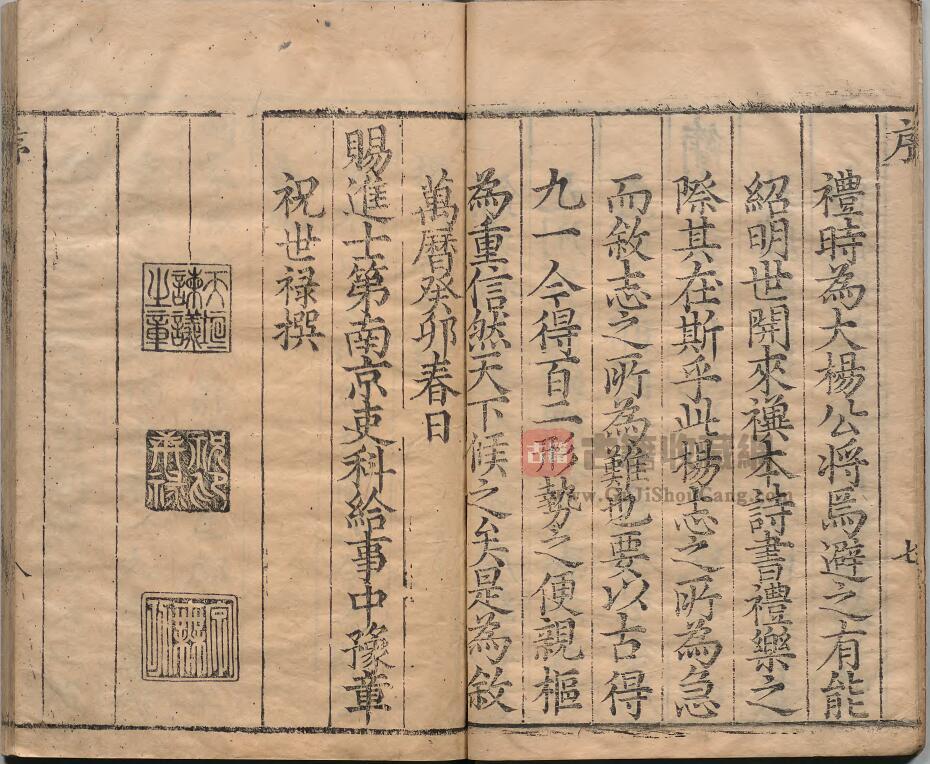 序
七
禮時為大楊公將焉避之有能
紹明世開來禩本詩書禮樂之
際其在斯乎此楊志之所為急
而敘志之所為難也要以古得
九一今得百二形勢之便親樞
為重信然天下候之矣是為敘
萬曆癸卯春日
賜進士第南京吏科給事中豫章
祝世祿撰
天垣諫議之章
序
八
古籍